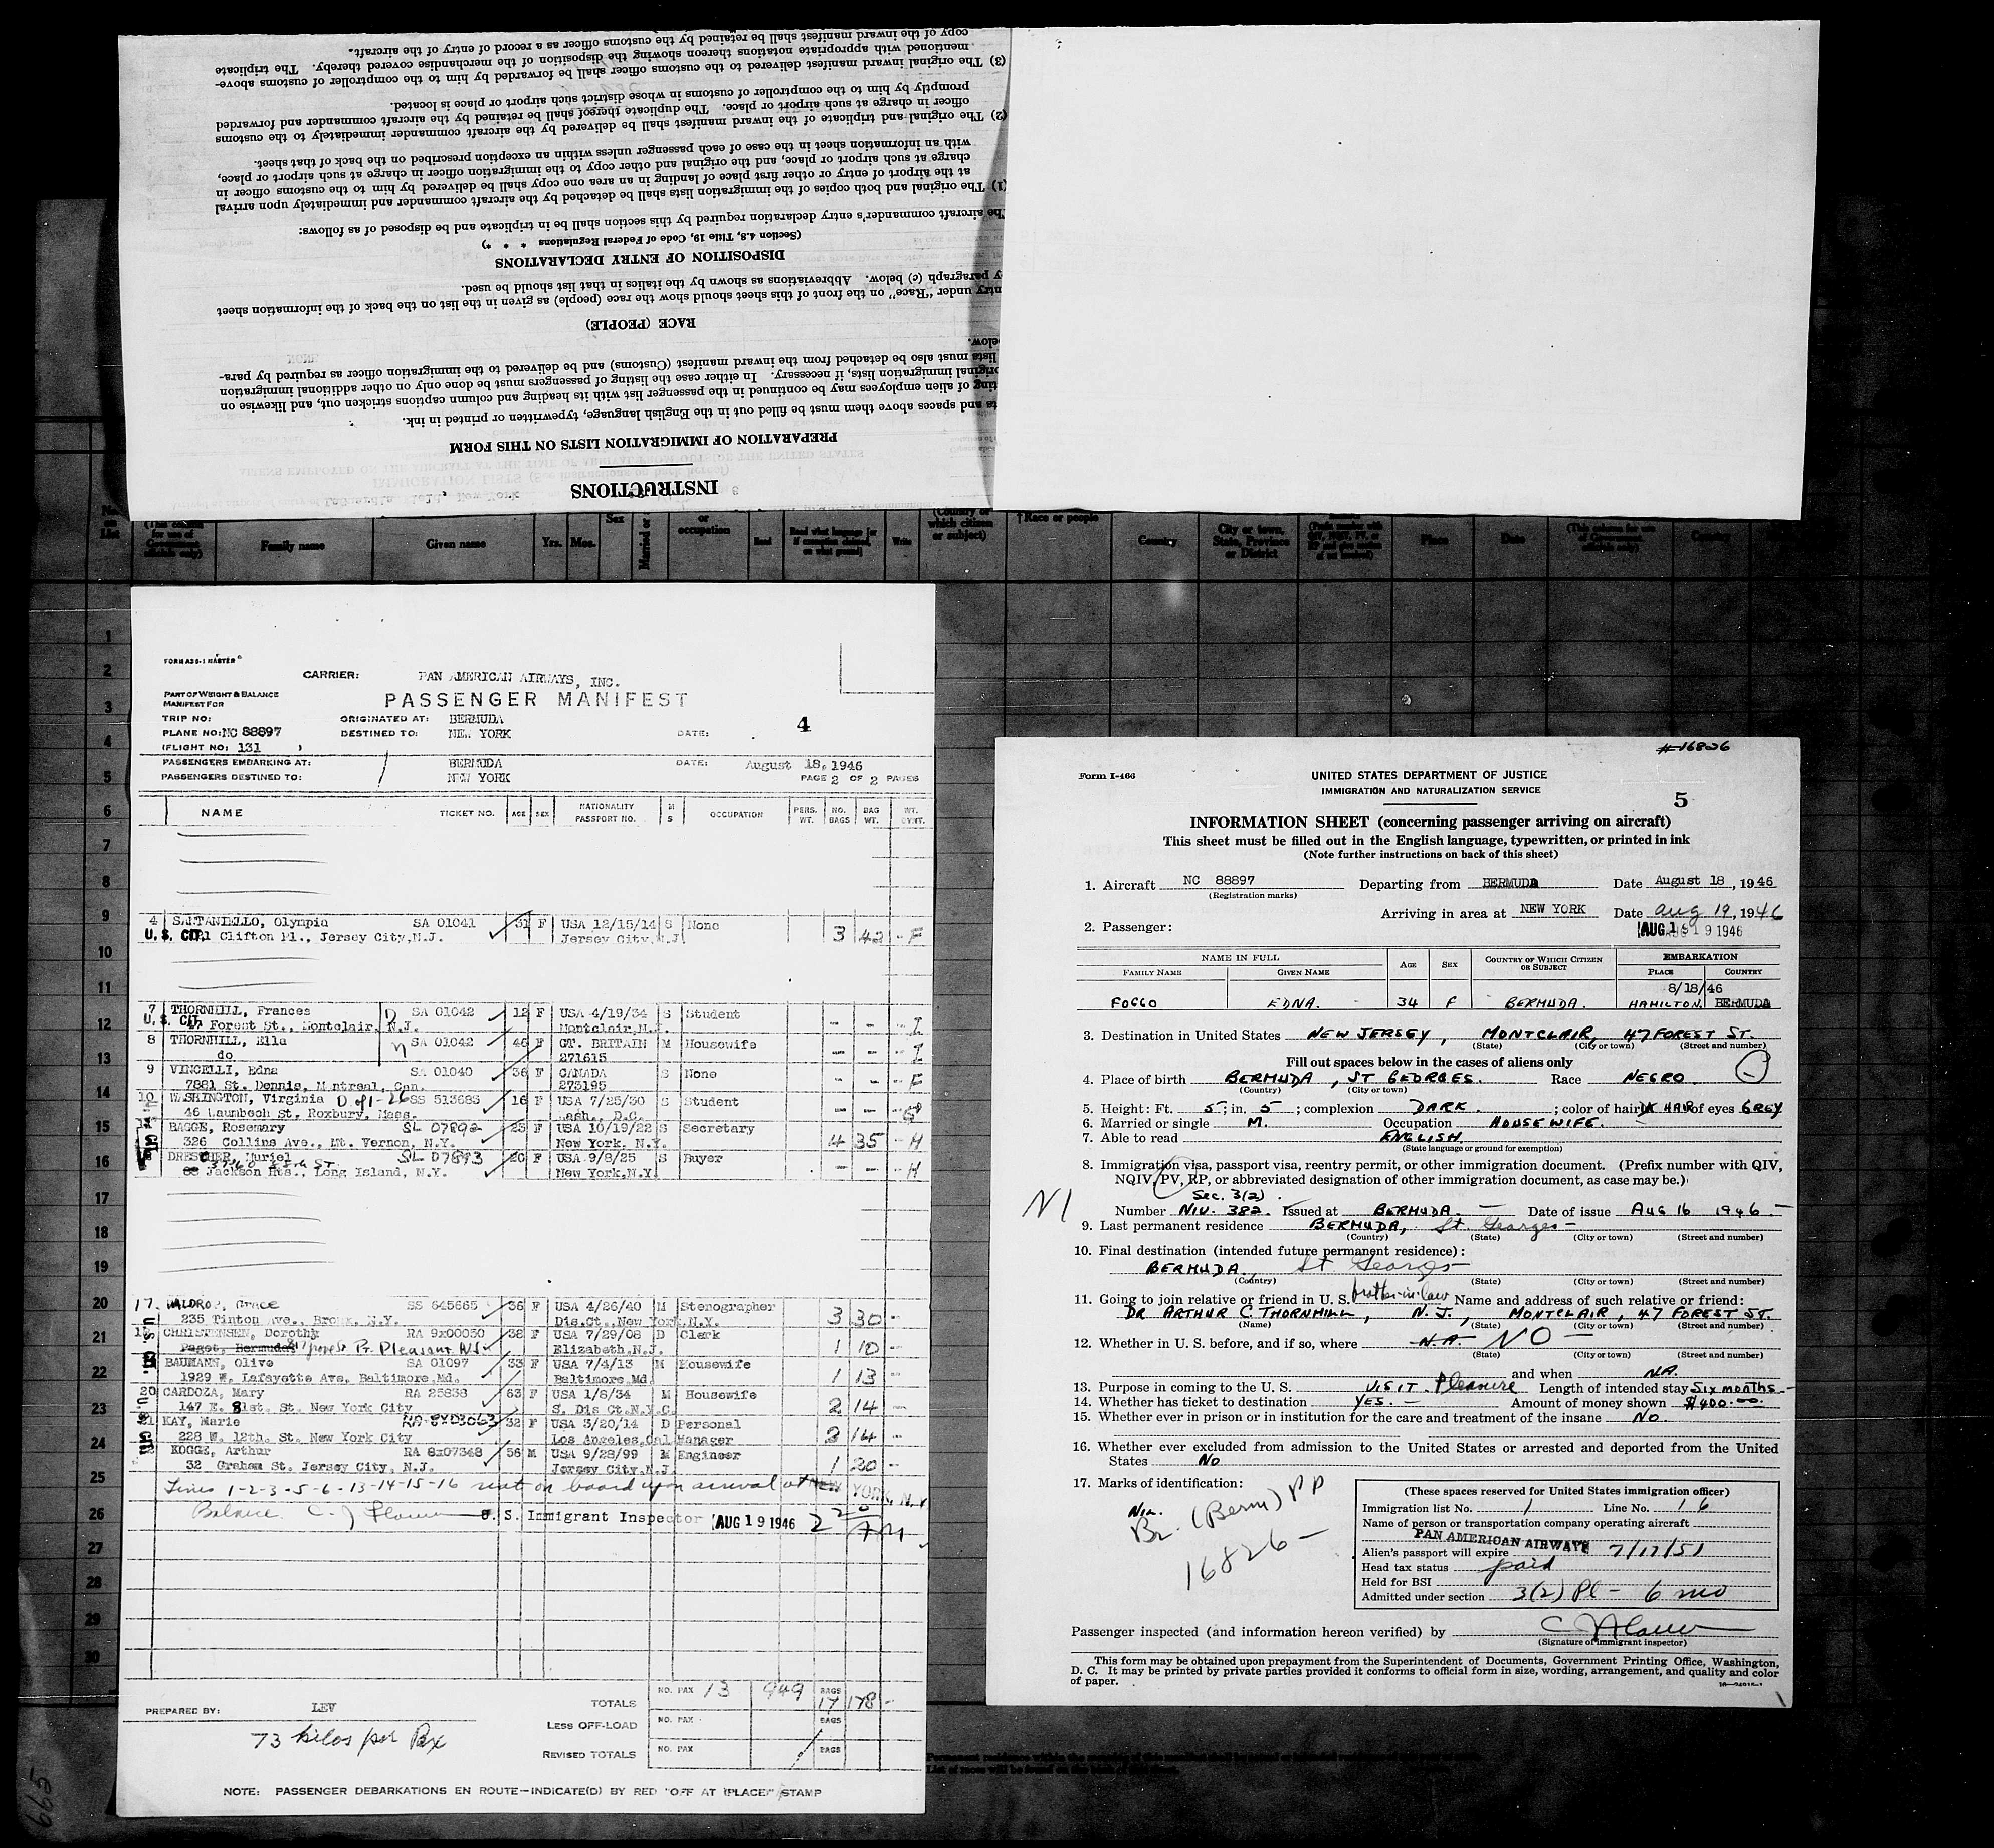 INSTRUCTIONS
PREPARATION OF IMMIGRATION LISTS ON THIS FORM
ts and spaces above them must be filled out in the English language, typewritten or printed in ink.
ting of alien employees may be continued in the passenger list with its heading and column captions stricken out, and likewise on
original immigration lists, if necessary. In either case the listing of passengers must be done only on other additional immigration
lists must also be detached from the inward manifest (Customs) and be delivered to the immigration officer as required by para-
below.
RACE (PEOPLE)
ntry under "Race" on the front of this sheet should show the race (people) as given in the list on the back of the information sheet
y paragraph (c) below. Abbreviations as shown by the italics in that list should be used.
DISPOSITION OF ENTRY DECLARATIONS
(Section 4.8, Title 19, Code of Federal Regulations * * *)
The aircraft commander's entry declaration required by this section shall be in triplicate and be disposed of as follows:
(1) The original and both copies of the immigration lists shall be detached by the aircraft commander and immediately upon arrival
at the airport of entry or other first place of landing in an area one copy shall be delivered by him to the customs officer in
charge at such airport or place, and the original and other copy to the immigration officer in charge at such airport or place,
with an information sheet in the case of each passenger unless within an exception prescribed on the back of that sheet.
(2) The original and triplicate of the inward manifest shall be delivered by the aircraft commander immediately to the customs
officer in charge at such airport or place. The duplicate thereof shall be retained by the aircraft commander and forwarded
promptly by him to the comptroller of customs in whose district such airport or place is located.
(3) The original inward manifest delivered to the customs officer shall be forwarded by him to the comptroller of customs above-
mentioned with appropriate notations thereon showing the disposition of the merchandise covered thereby. The triplicate
copy of the inward manifest shall be retained by the customs officer as a record of entry of the aircraft.
No. on List
Family name
Given name
Sex
Yrs. Mos.
or occupation
Read
Read what language [or if exemption claimed, on what ground]
Write
(Country of which citizen or subject)
†Race or people
Country
City or town, State, Province or District
Place
Date
1
2
3
4
5
6
7
8
9
10
11
12
13
14
15
16
17
18
19
20
21
22
23
24
25
26
27
28
29
30
FORM A36-1 MASTER
CARRIER: PAN AMERICAN AIRWAYS, INC.
PART OF WEIGHT & BALANCE
MANIFEST FOR
PASSENGER MANIFEST
TRIP NO:
ORIGINATED AT: BERMUDA
4
PLANE NO: NC 88897
DESTINED TO: NEW YORK
DATE:
(FLIGHT NO: 131 )
PASSENGERS EMBARKING AT: BERMUDA DATE: August 18, 1946
PASSENGERS DESTINED TO: NEW YORK PAGE 2 OF 2 PAGES
NAME TICKET NO. AGE SEX NATIONALITY PASSPORT NO. M S OCCUPATION PERS. WT. NO. BAGS BAG WT.
4 SANTANIELLO, Olympia SA 01041 31 F USA 12/15/14 S None
U.S. CIT. Clifton Pl., Jersey City, N.J. Jersey City, N.J. 3 42 - F
7 THORNHILL, Frances SA 01042 12 F USA 4/19/34 S Student
U.S. CIT. 47 Forest St., Montclair, N.J. Montclair, N.J. - - I
8 THORNHILL, Ella SA 01042 46 F GT. BRITAIN M Housewife
do 271615 - - I
9 VINCELLI, Edna SA 01040 36 F CANADA S None
7881 St. Dennis, Montreal, Can. 273195 - - F
10 WASHINGTON, Virginia SS 513683 16 F USA 7/25/30 S Student
46 Laumbech St, Roxbury, Mass. Wash., D.C. - -
BAGGE, Rosemary SL 07892 23 F USA 10/19/22 S Secretary
326 Collins Ave., Mt. Vernon, N.Y. New York, N.Y. 4 35 - H
DRESCHER, Muriel SL 07893 20 F USA 9/8/25 S Buyer
Jackson Hts., Long Island, N.Y. New York, N.Y. - - H
17. WALDROP, Grace SS 645665 36 F USA 4/26/40 M Stenographer
235 Tinton Ave., Bronx, N.Y. Dis.Ct., New York, N.Y. 3 30 -
CHRISTENSEN, Dorothy RA 9x00050 38 F USA 7/29/08 D Clerk
Paget, Bermuda Pt. Pleasant NJ Elizabeth, N.J. 1 10 -
BAUMANN, Olive SA 01097 33 F USA 7/4/13 M Housewife
1929 W. Lafayette Ave, Baltimore, Md. Baltimore, Md. 1 13
20 CARDOZA, Mary RA 25838 63 F USA 1/6/34 M Housewife
147 E. 81st. St. New York City S. Dis Ct. N.Y.C. 2 14 -
21 KAY, Marie 32 F USA 3/20/14 D Personal
228 W. 12th. St. New York City Los Angeles, Cal Manager 2 14 -
KOGGE, Arthur RA 8x07348 56 M USA 9/28/99 M Engineer
32 Graham St. Jersey City, N.J. Jersey City, N.J. 1 20 -
Lines 1-2-3-5-6-13-14-15-16 not on board upon arrival at NEW YORK, N.Y.
Balance U. S. Immigrant Inspector AUG 19 1946
PREPARED BY: LEV
TOTALS NO. PAX 13 949 BAGS 17 178 -
LESS OFF-LOAD NO. PAX BAGS
REVISED TOTALS NO. PAX BAGS
73 kilos per Pax
NOTE: PASSENGER DEBARKATIONS EN ROUTE—INDICATE(D) BY RED "OFF AT (PLACE)" STAMP
665
#16826
Form I-466
UNITED STATES DEPARTMENT OF JUSTICE
IMMIGRATION AND NATURALIZATION SERVICE
5
INFORMATION SHEET (concerning passenger arriving on aircraft)
This sheet must be filled out in the English language, typewritten, or printed in ink
(Note further instructions on back of this sheet)
1. Aircraft NC 88897 Departing from BERMUDA Date August 18, 1946
(Registration marks)
Arriving in area at NEW YORK Date Aug 19, 1946
2. Passenger: AUG 19 1946
NAME IN FULL AGE SEX COUNTRY OF WHICH CITIZEN OR SUBJECT EMBARKATION
FAMILY NAME GIVEN NAME PLACE COUNTRY
8/18/46
FOGGO EDNA. 34 F BERMUDA. HAMILTON, BERMUDA
3. Destination in United States NEW JERSEY, MONTCLAIR, 47 FOREST ST.
(State) (City or town) (Street and number)
Fill out spaces below in the cases of aliens only
4. Place of birth BERMUDA, ST GEORGES. Race NEGRO
(Country) (City or town)
5. Height: Ft. 5; in. 5; complexion DARK.; color of hair DK HAIR of eyes GREY
6. Married or single M. Occupation HOUSEWIFE.
7. Able to read ENGLISH
(State language or ground for exemption)
8. Immigration visa, passport visa, reentry permit, or other immigration document. (Prefix number with QIV,
NQIV, PV, RP, or abbreviated designation of other immigration document, as case may be.)
Sec. 3(2).
Number NIV. 382. Issued at BERMUDA. Date of issue AUG 16 1946.
9. Last permanent residence BERMUDA, St. Georges
(Country) (State) (City or town) (Street and number)
10. Final destination (intended future permanent residence):
BERMUDA, St Georges
(Country) (State) (City or town) (Street and number)
11. Going to join relative or friend in U. S. brother in law Name and address of such relative or friend:
DR ARTHUR C. THORNHILL, N. J., MONTCLAIR, 47 FOREST ST.
(Name) (State) (City or town) (Street and number)
12. Whether in U. S. before, and if so, where N.A. NO
(State) (City or town) (Street and number)
and when NA.
13. Purpose in coming to the U. S. VISIT. Pleasure Length of intended stay Six months
14. Whether has ticket to destination YES. Amount of money shown $400.00
15. Whether ever in prison or in institution for the care and treatment of the insane NO.
16. Whether ever excluded from admission to the United States or arrested and deported from the United
States NO
17. Marks of identification:
NIL.
Br. (Berm) PP
16826
(These spaces reserved for United States immigration officer)
Immigration list No. 1 Line No. 16
Name of person or transportation company operating aircraft
PAN AMERICAN AIRWAYS
Alien's passport will expire 7/17/51
Head tax status paid
Held for BSI
Admitted under section 3(2) Pl - 6 mo
Passenger inspected (and information hereon verified) by
(Signature of immigrant inspector)
This form may be obtained upon prepayment from the Superintendent of Documents, Government Printing Office, Washington,
D. C. It may be printed by private parties provided it conforms to official form in size, wording, arrangement, and quality and color
of paper.